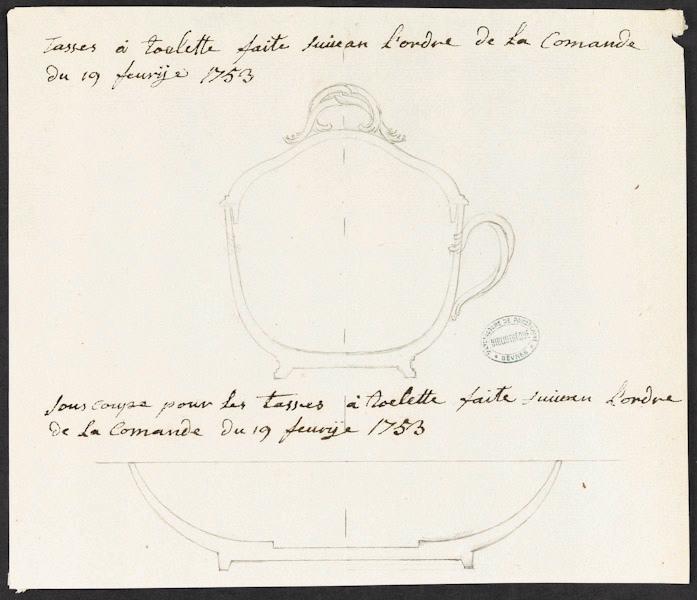 Tasses à toelette faite suivan L'ordre de La Comande
du 19 feurije 1753
MANUFACTURE DE PORCELAINE
BIBLIOTHÈQUE
★ SÈVRES ★
Sous coupe pour Les tasses à toelette faite suivan L'ordre
de La Comande du 19 feurije 1753